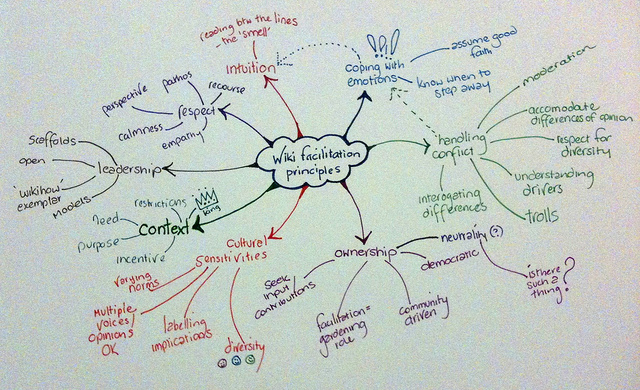 Wiki facilitation
principles
reading btw the lines
- the 'smell'
intuition
coping with
emotions
assume good
faith
know when to
step away
handling
conflict
moderation
accomodate
differences of opinion
respect for
diversity
understanding
drivers
trolls
interogating
differences
ownership
neutrality (?)
is there
such a
thing?
democratic
community
driven
facilitation =
gardening
role
seek
input/
contributions
cultural
sensitivities
varying
norms
multiple
voices/
opinions
OK
labelling
implications
diversity
context
king
restrictions
need
purpose
incentive
leadership
scaffolds
open
'wikihow'
exemplar
models
respect
perspective
pathos
recourse
calmness
empathy